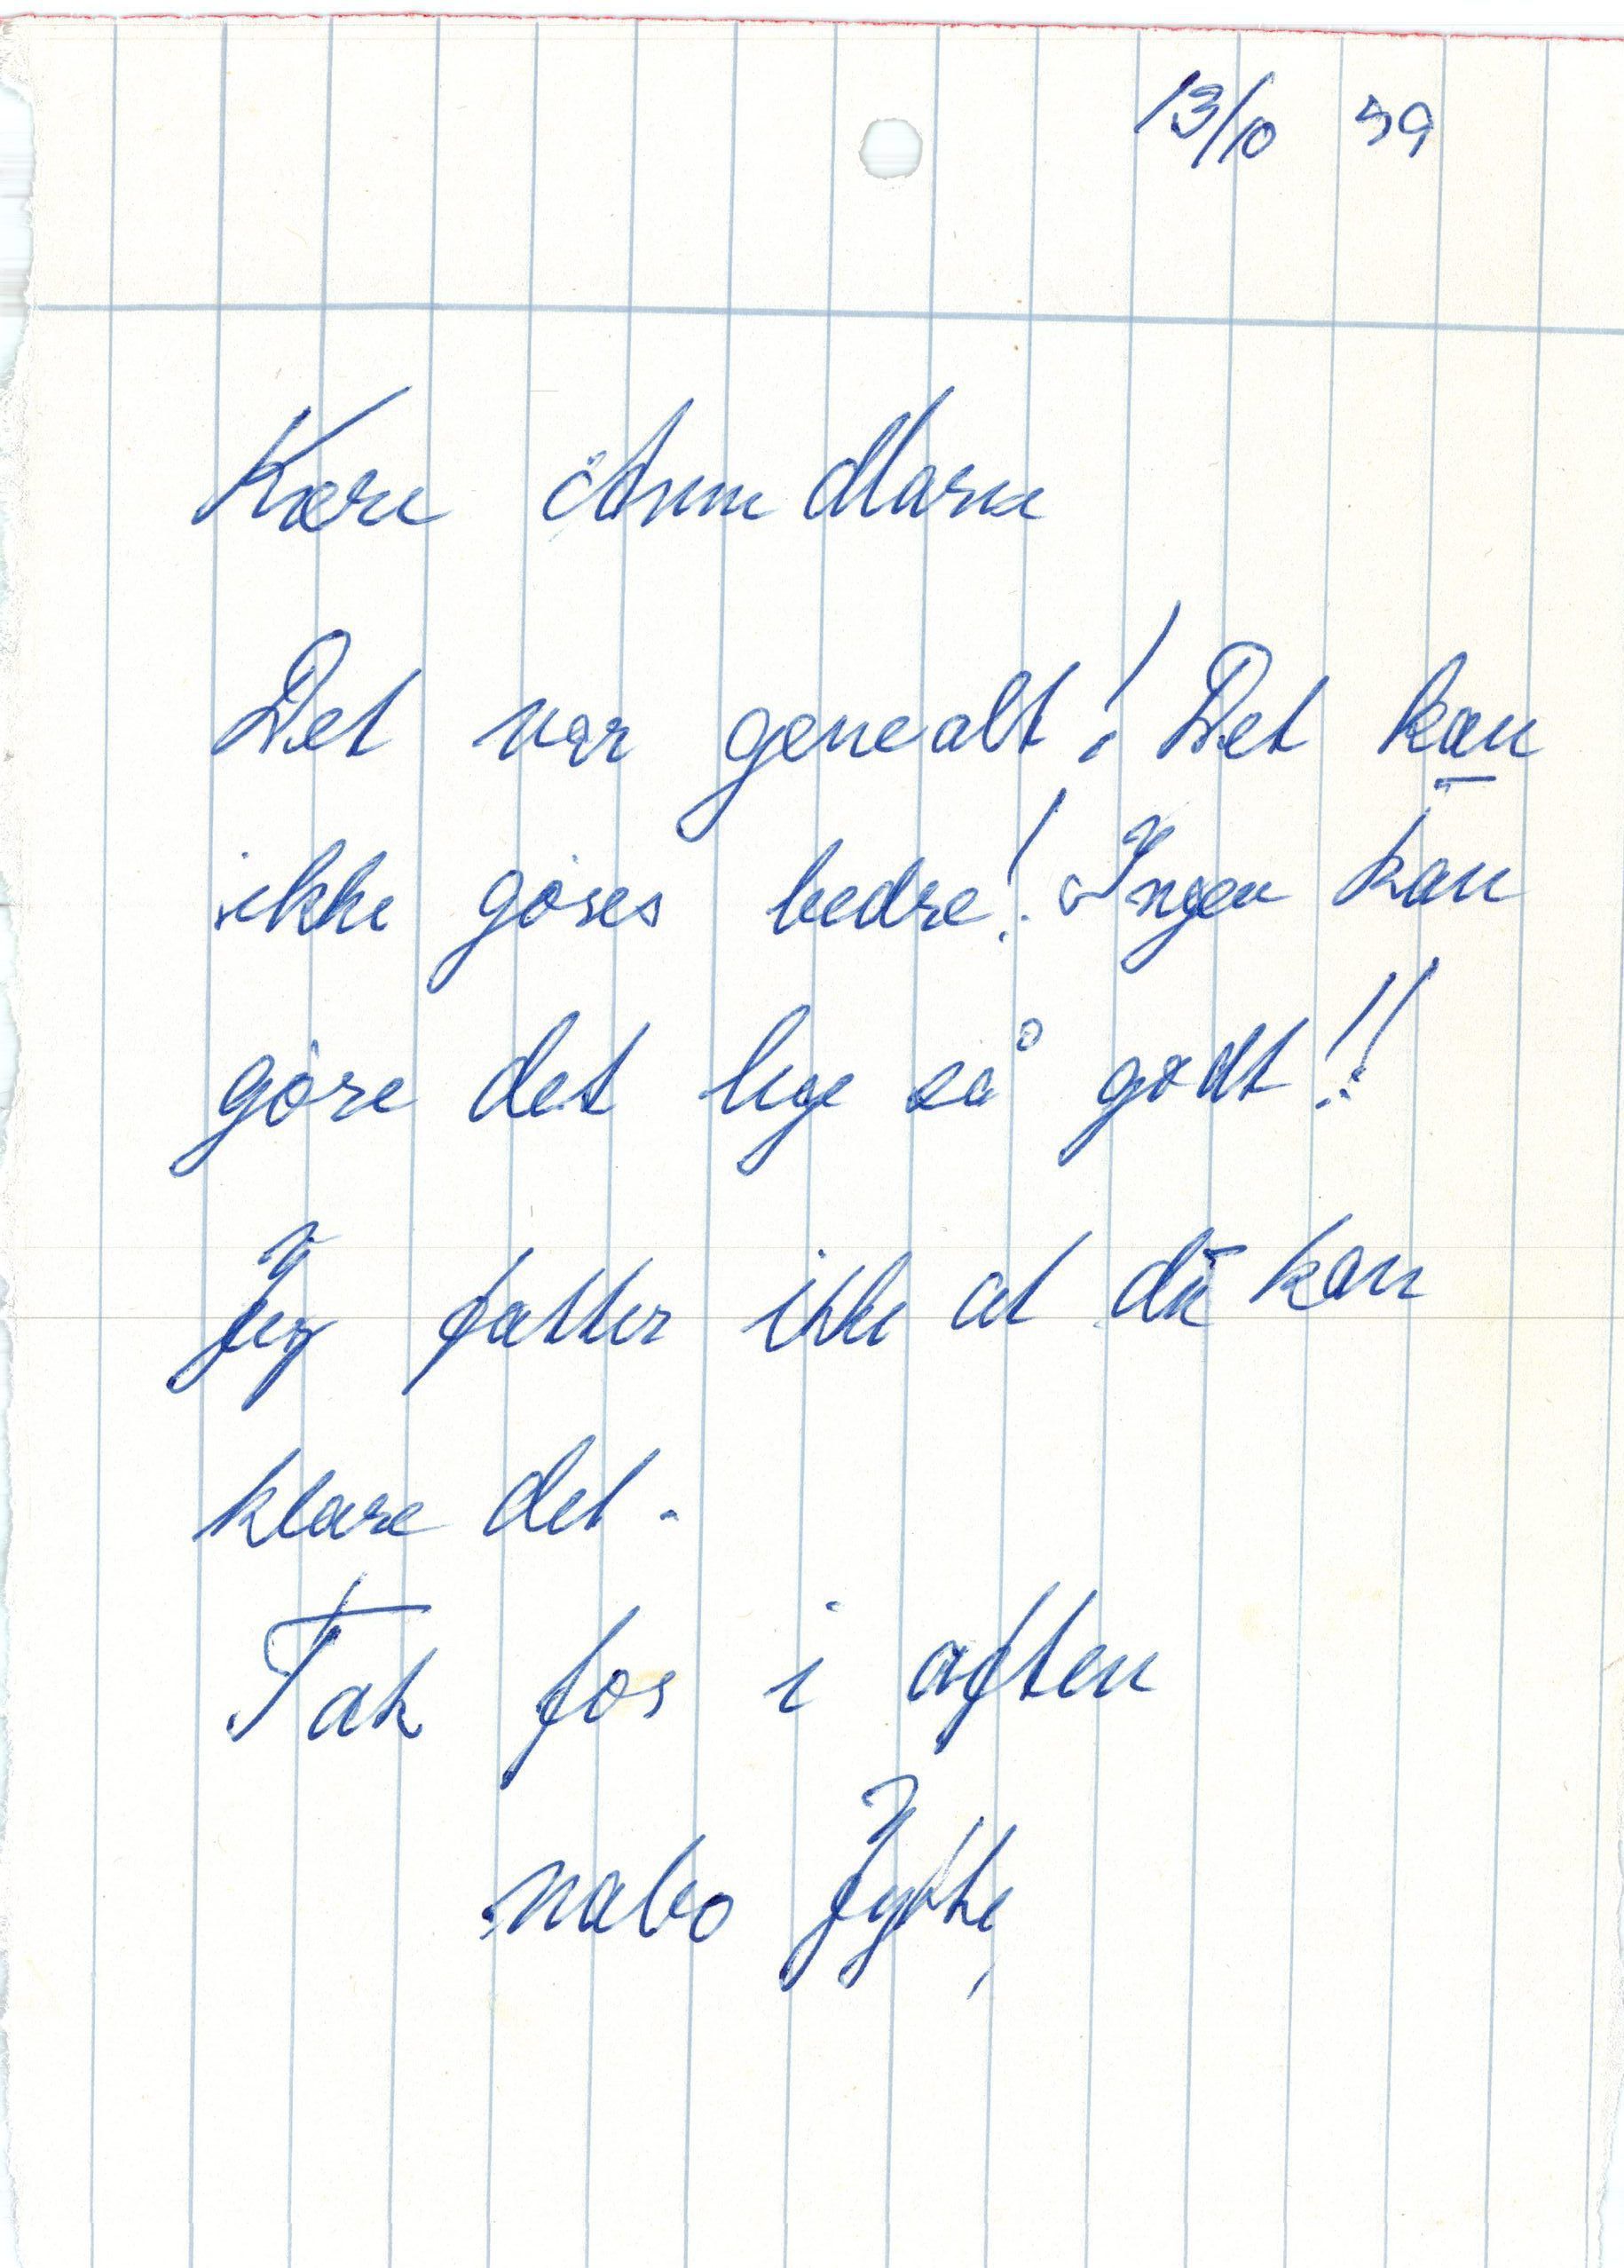 13/10 59
Kære Anne Marie
Det var genealt! Det kan
ikke gøres bedre! Ingen kan
gøre det lige så godt!!
Jeg fatter ikke at du kan
klare det.
Tak for i aften
nabo